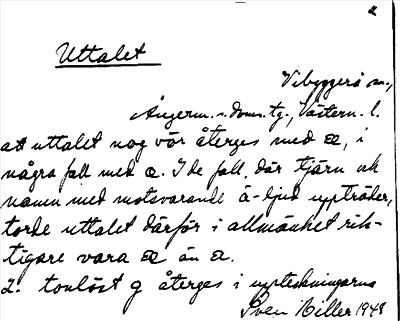 Uttalet
Vibyggerå sn.,
Ångerm. s. doms. tg., Västern. l.
att uttalet nog vör återges med a, i
några fall med a. I de fall, där tjärn och
namn med motsvarande ä-ljud uppträder,
torde uttalet därför i allmänhet rik-
tigare vara än
2. tonlöst g återges i uppteckningarna
Sven Hiller 1948